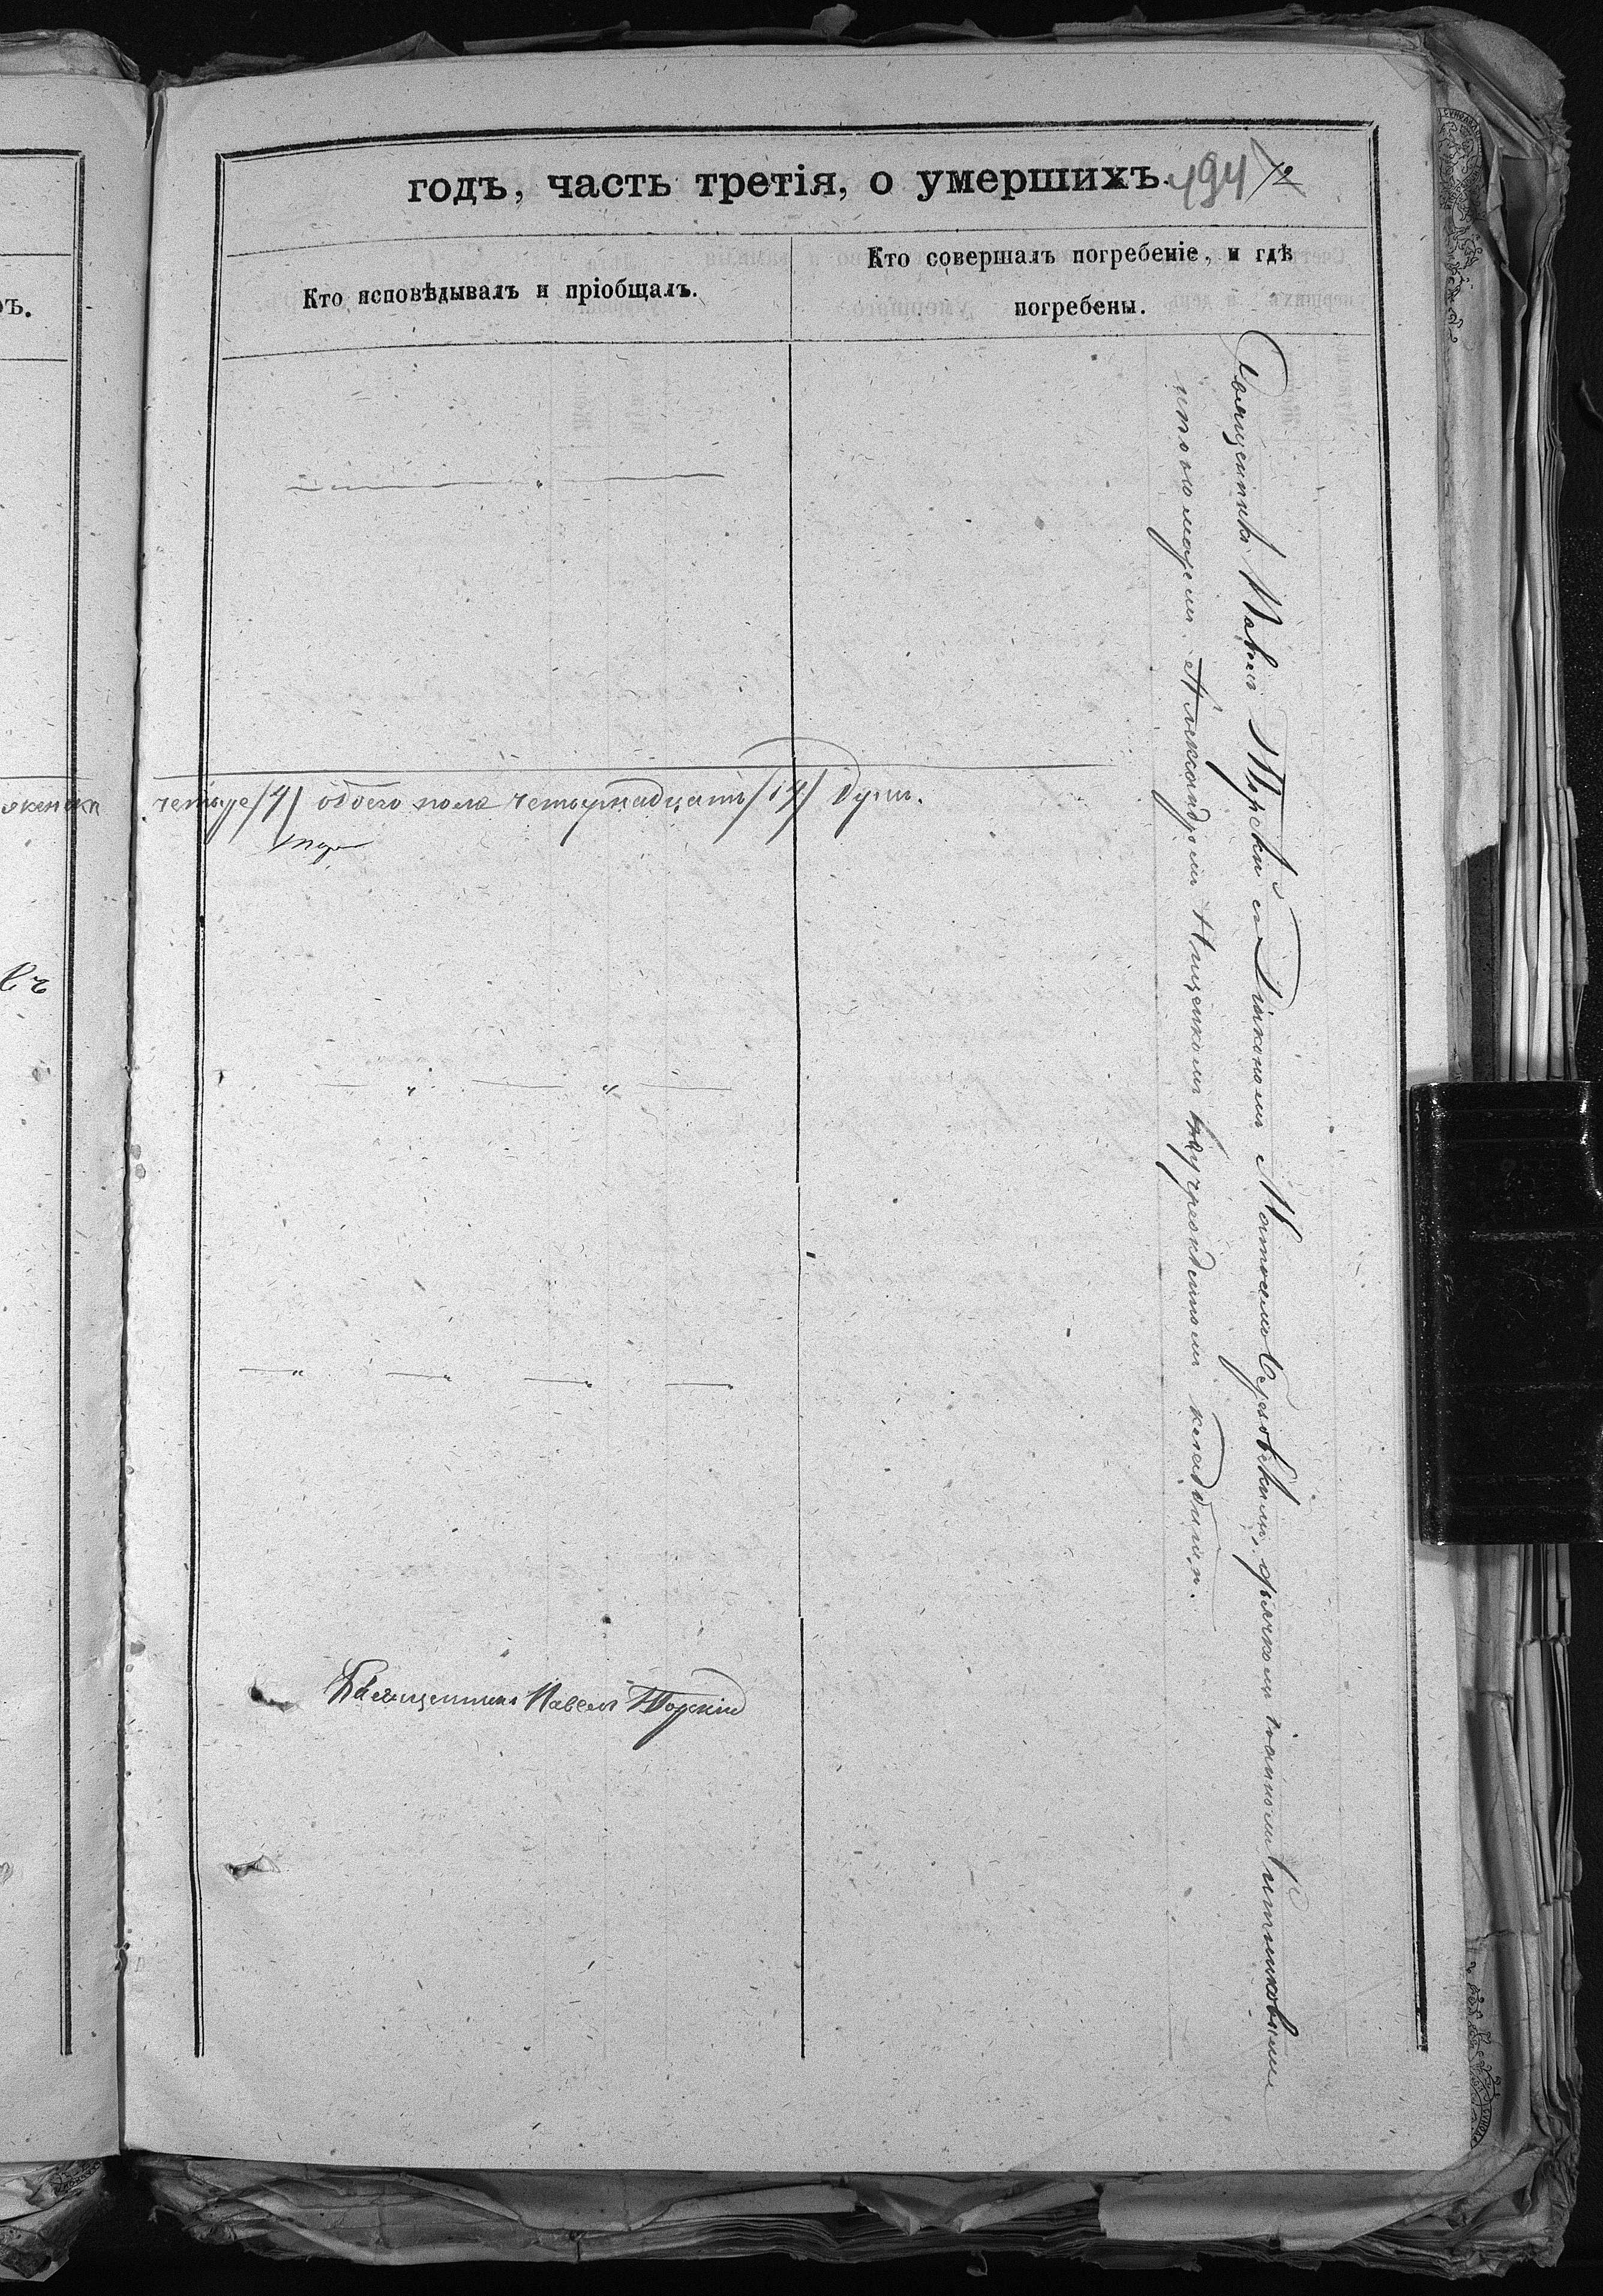 годъ, часть третія, о умершихъ.
494
Кто исповѣдывалъ и пріобщалъ.
Кто совершалъ погребеніе, и гдѣ
погребены.
четыре /4/ обоего пола четырнадцать /14/ душъ.
Священникъ Павелъ Торскій
Священникъ Павелъ Торскій съ Діакономъ
дьячкомъ Іоанномъ
и пономаремъ Александромъ Нищенкомъ на учрежденномъ кладбищѣ.
ъ.